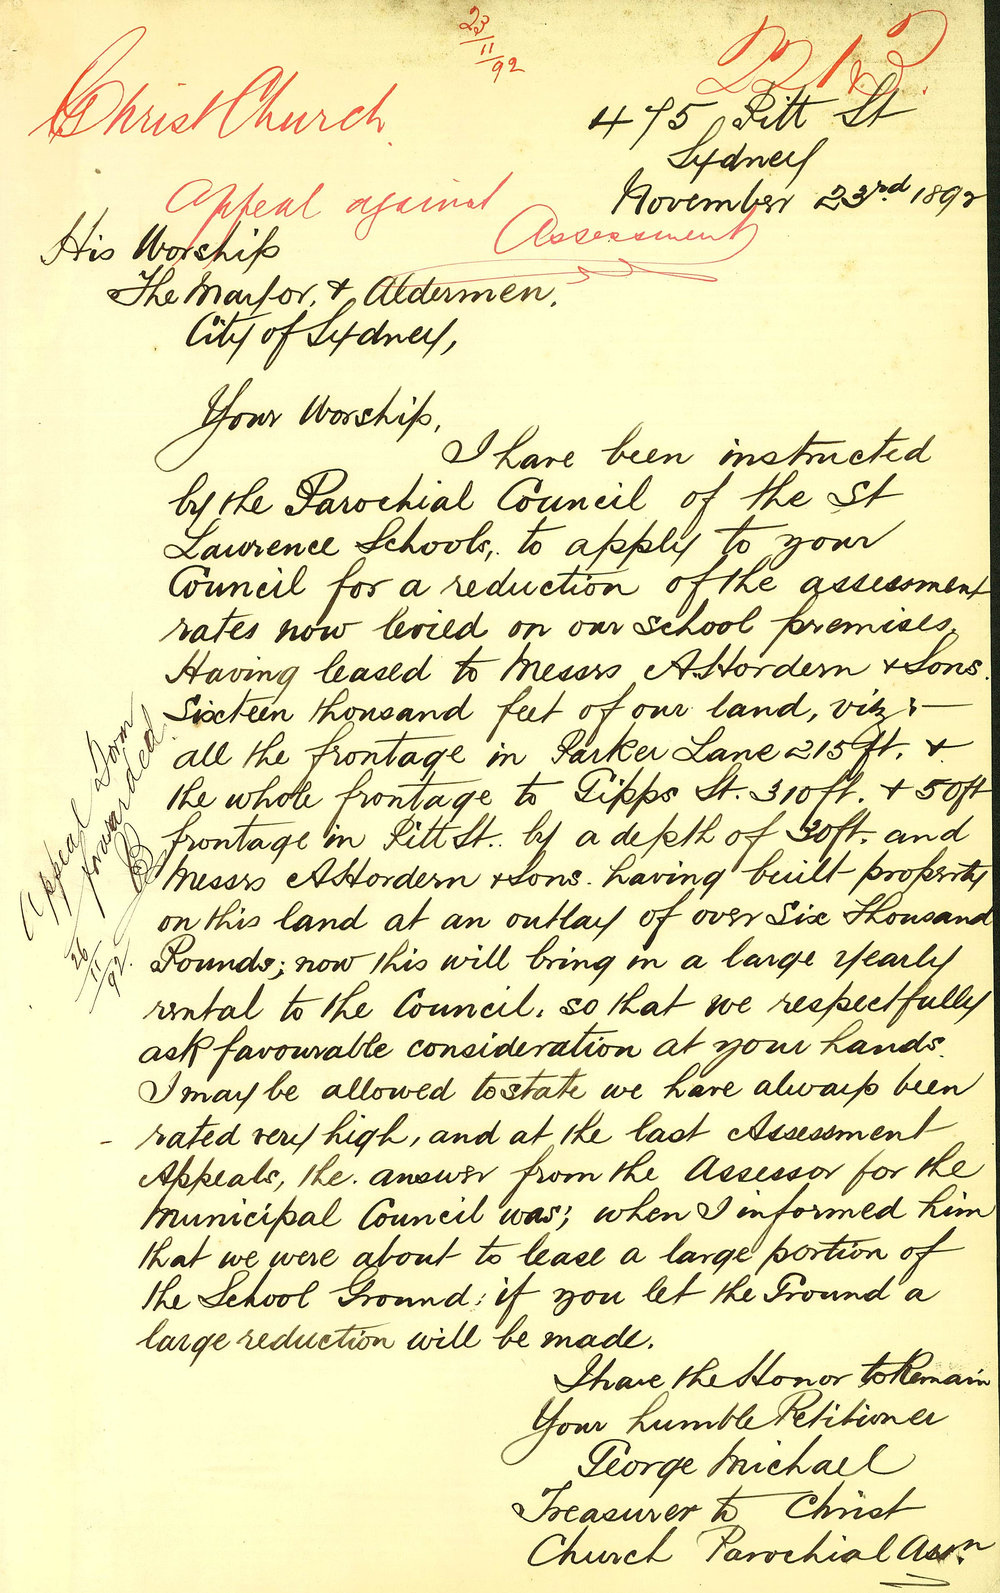 23
11
92
2213.
Christ Church
Appeal against
Assessment
475 Pitt St
Sydney
November 23rd 1892
His Worship
The Mayor, & Aldermen.
City of Sydney,
Your Worship,
I have been instructed
by the Parochial Council of the St
Lawrence Schools, to apply to your
Council for a reduction of the assessment
rates now levied on our school premises.
Having leased to Messrs A Hordern & Sons.
Sixteen thousand feet of our land, viz :-
all the frontage in Parker Lane 215 ft. &
the whole frontage to Gipps St. 310 ft. & 50 ft
frontage in Pitt St. by a depth of 30 ft. and
Messrs A Hordern & Sons. having built property
on this land at an outlay of over Six Thousand
Pounds; now this will bring in a large yearly
rental to the Council. so that we respectfully
ask favourable consideration at your hands.
I may be allowed to state we have always been
- rated very high, and at the last Assessment
Appeals, the answer from the Assessor for the
Municipal Council was; when I informed him
that we were about to lease a large portion of
the School Ground; if you let the Ground a
large reduction will be made.
I have the Honor to Remain
Your humble Petitioner
George Michael
Treasurer to Christ
Church Parochial Assn.
Appeal Form
forwarded
26
11
92.